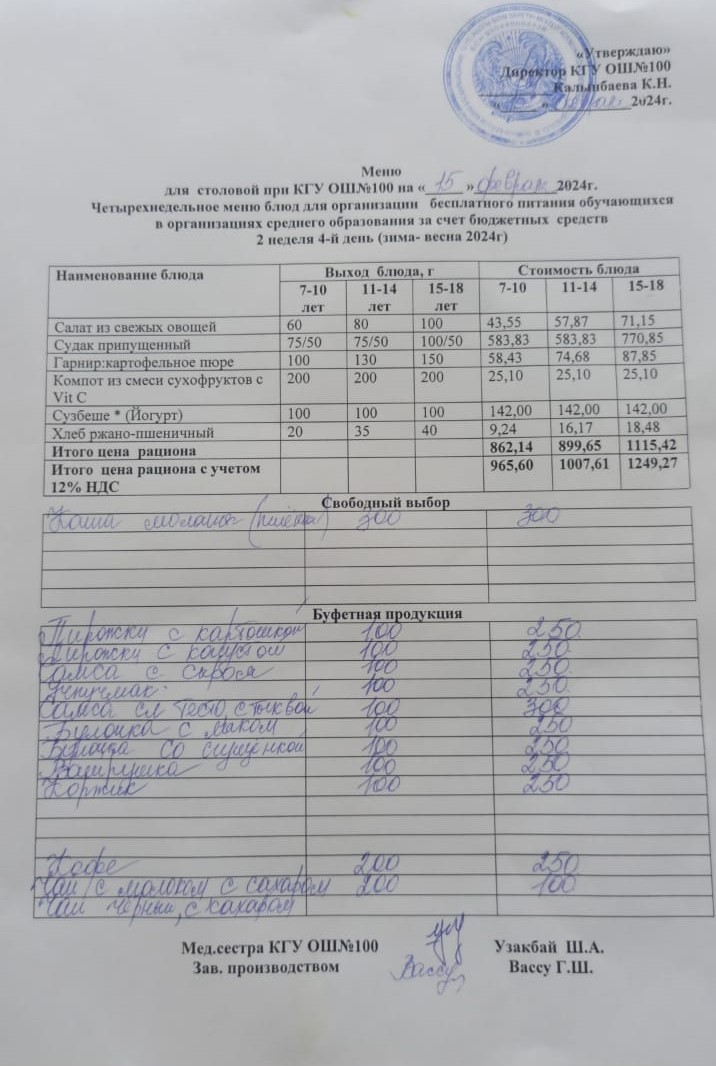 «Утверждаю»
Директор КГУ ОШ№100
Калынбаева К.Н.
2024г.
Меню
для столовой при КГУ ОШ№100 на « 15 » феврал 2024г.
Четырехнедельное меню блюд для организации бесплатного питания обучающихся
в организациях среднего образования за счет бюджетных средств
2 неделя 4-й день (зима- весна 2024г)
Наименование блюда Выход блюда, г Стоимость блюда
7-10 лет 11-14 лет 15-18 лет 7-10 11-14 15-18
Салат из свежых овощей 60 80 100 43,55 57,87 71,15
Судак припущенный 75/50 75/50 100/50 583,83 583,83 770,85
Гарнир:картофельное пюре 100 130 150 58,43 74,68 87,85
Компот из смеси сухофруктов с 200 200 200 25,10 25,10 25,10
Vit C
Сузбеше * (Йогурт) 100 100 100 142,00 142,00 142,00
Хлеб ржано-пшеничный 20 35 40 9,24 16,17 18,48
Итого цена рациона 862,14 899,65 1115,42
Итого цена рациона с учетом 965,60 1007,61 1249,27
12% НДС
Свободный выбор
Каша 300 300
Буфетная продукция
Пирожки с картошкой 100 250
Пирожки с капустой 100 250
Самса с 100 250
Учпучмак 100 250
Самса сл тесто, с тыквой 100 300
Булочка с маком 100 250
Булочка со сгущенкой 100 250
Ватрушка 100 250
Коржик 100 250
Кофе 200 250
Чай с молоком с сахаром 200 100
Чай черный, с сахаром
Мед.сестра КГУ ОШ№100 Узакбай Ш.А.
Зав. производством Вассу Вассу Г.Ш.